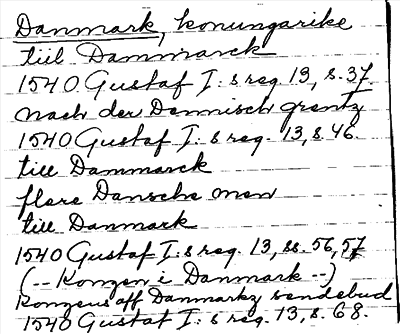 Danmark, konungarike
till Dammarck
1540 Gustaf I:s reg. 13, s. 37
nach der Dennisch grentz
1540 Gustaf I:s reg. 13, s. 46.
till Dammarck
flere Dansche men
till Danmark
1540 Gustaf I:s reg. 13, ss. 56, 57
(-- Kongen i Danmark --)
Kongens aff Danmarkz sendebud
1540 Gustaf I:s reg. 13, s. 68.